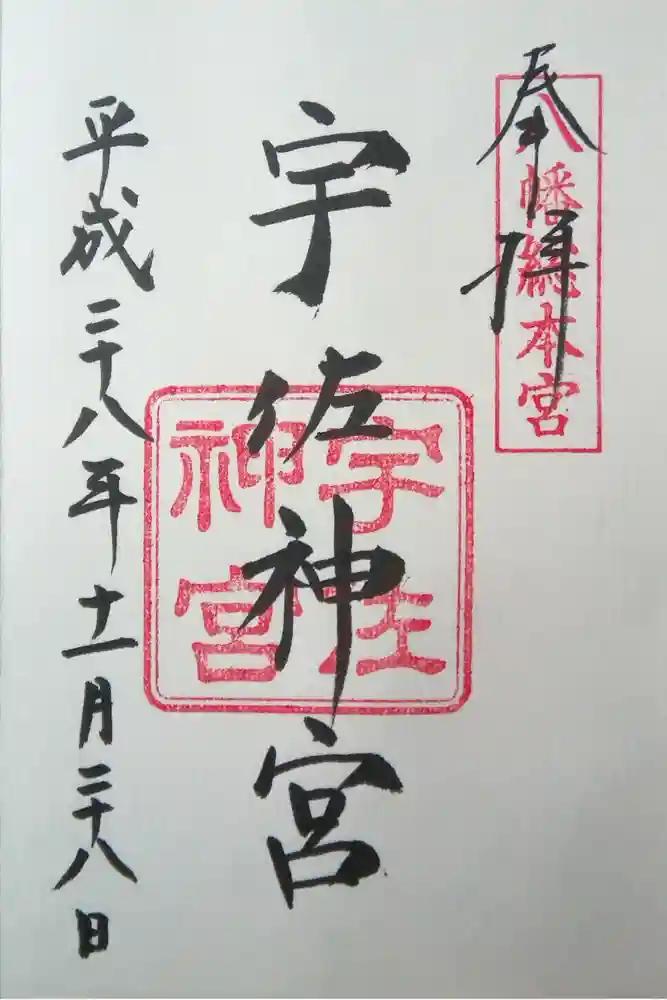 奉拝
八幡總本宮
宇佐神宮
宇佐神宮
平成二十八年十一月二十八日